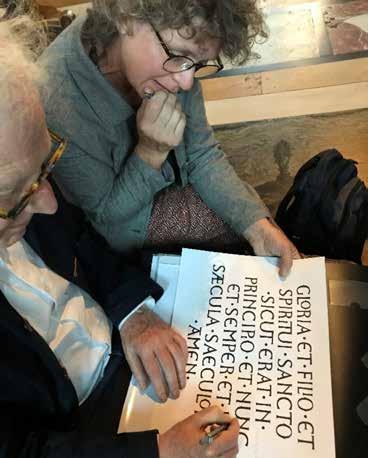 GLORIA·ET·FILIO·ET
SPIRITUI·SANCTO
·SICUT·ERAT·IN·
PRINCIRO·ET·NUNC
ET·SEMPER·ET·
SÆCULA·SAECULO
·AMEN·